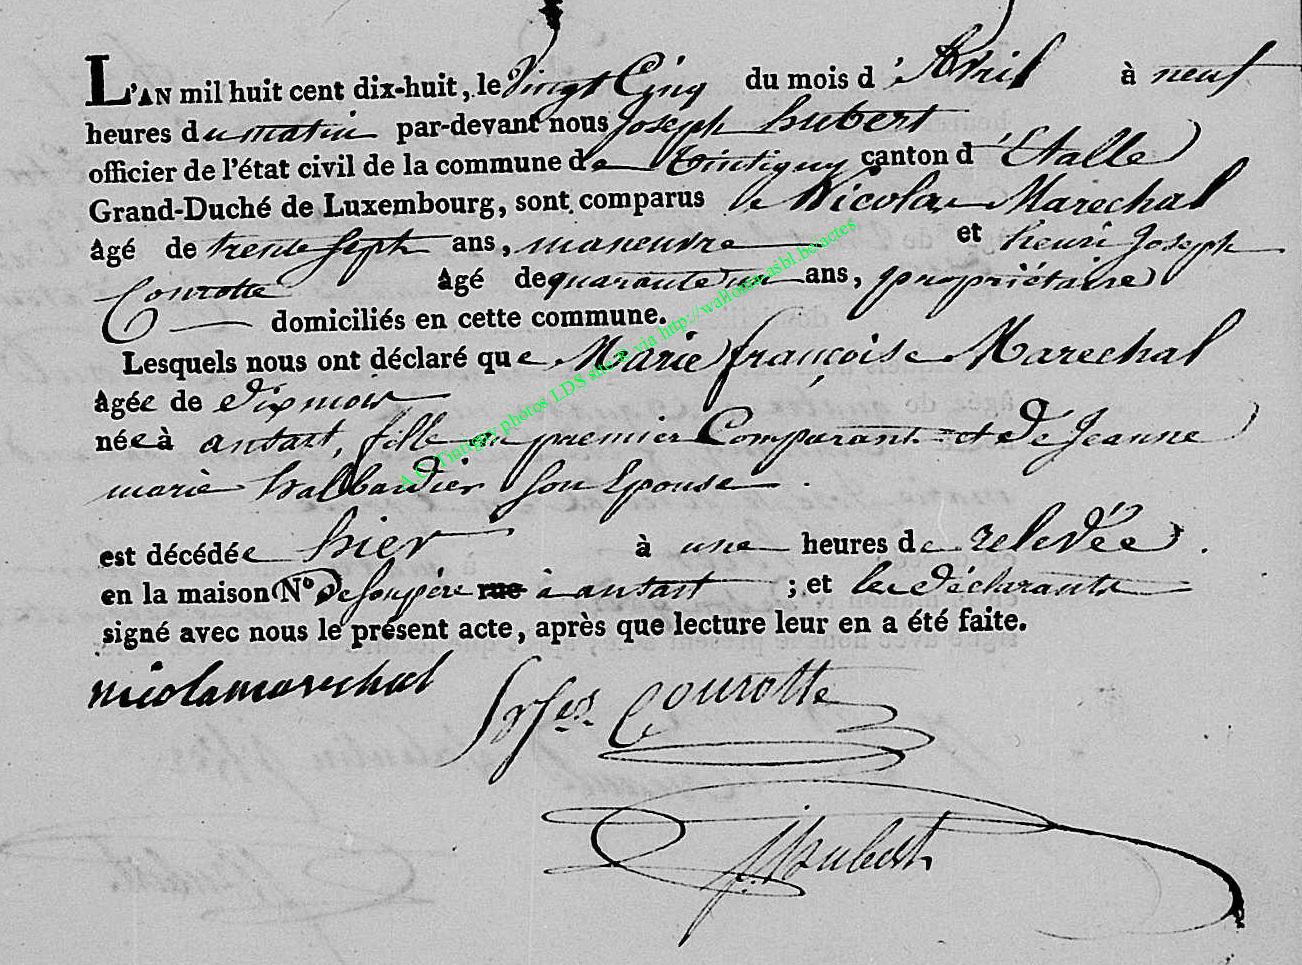 L'AN mil huit cent dix-huit, le Vingt Cinq du mois d'Avril à neuf
heures du matin par-devant nous Joseph hubert
officier de l'état civil de la commune de tintigny canton d'Etalle
Grand-Duché de Luxembourg, sont comparus le Nicolas Marechal
âgé de trente sept ans, maneuvre et henri Joseph
Courotte âgé de quarante un ans, propriétaire
domiciliés en cette commune.
Lesquels nous ont déclaré que Marie françoise Marechal
âgée de dix mois
née à ansart, fille du premier Comparant et de Jeanne
marie halbardier son Epouse.
est décédée hier à une heures de relevée.
en la maison N° de son père rue à ansart ; et les déclarants
signé avec nous le présent acte, après que lecture leur en a été faite.
nicolamarechal
Courotte
J. hubert
A.C. Tintigny photos LDS site © via http://wallonia-asbl.be/actes